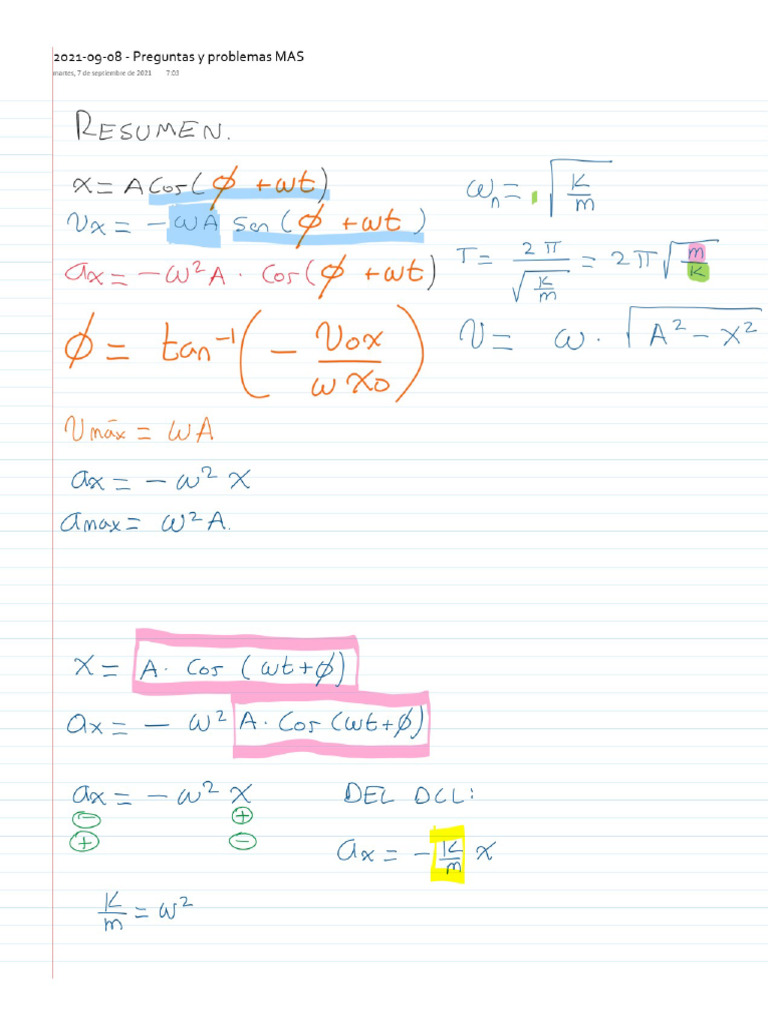 2021-09-08 - Preguntas y problemas MAS
martes, 7 de septiembre de 2021 7:03
RESUMEN.
x = A Cos(ϕ + ωt)
Vx = - ωA sen(ϕ + ωt)
ax = - ω²A · Cos(ϕ + ωt)
ϕ = tan⁻¹(- Vox / ωXo)
Vmáx = ωA
ax = - ω² x
amax = ω² A.
ωn = √(K/m)
T = 2π / √(K/m) = 2π √(m/K)
V = ω · √(A² - X²)
X = A · Cos (ωt + ϕ)
ax = - ω² A · Cos (ωt + ϕ)
ax = - ω² X
⊖ ⊕
⊕ ⊖
K/m = ω²
DEL DCL:
ax = - K/m x